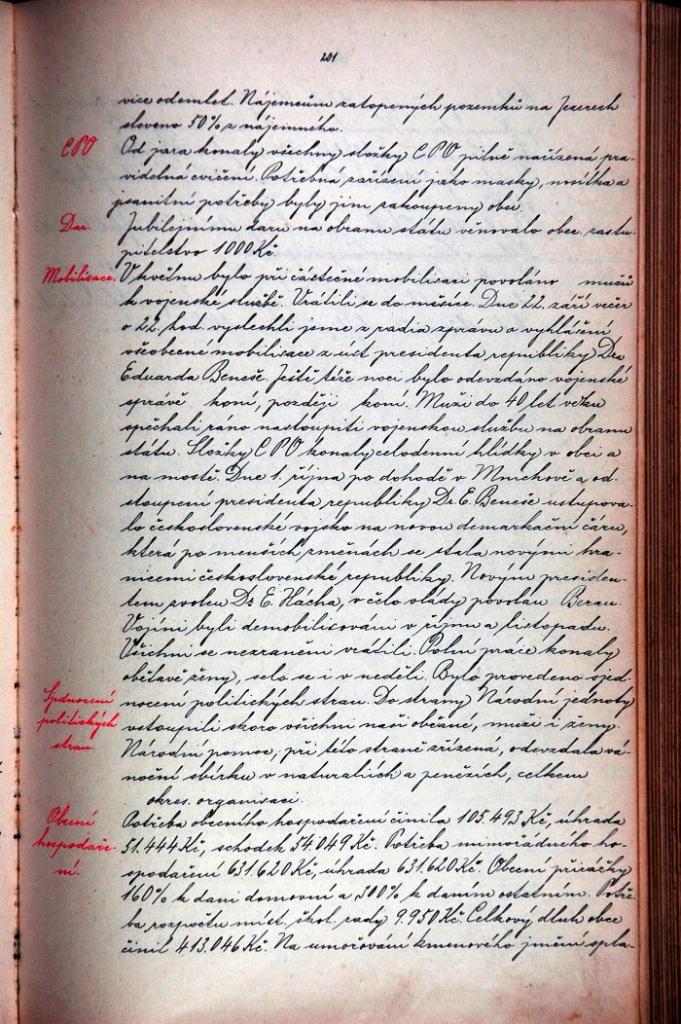 201
více odemlet. Nájemcům zatopených pozemků na Jezerech
sleveno 50% z nájemného.
CPO
Od jara konaly všechny složky CPO pilně nařízená pra-
videlná cvičení. Potřebná zařízení jako masky, nosítka a
sanitní potřeby byly jim zakoupeny obcí.
Dar.
Jubilejnímu daru na obranu státu věnovalo obec. zastu-
pitelstvo 1000 Kč.
Mobilisace.
V květnu bylo při částečné mobilisaci povoláno mužů
k vojenské službě. Vrátili se do měsíce. Dne 22. září večer
o 22. hod. vyslechli jsme z radia zprávu o vyhlášení
všeobecné mobilisace z úst presidenta republiky Dra
Eduarda Beneše. Ještě téže noci bylo odevzdáno vojenské
správě koní, později koní. Muži do 40 let věku
spěchali ráno nastoupiti vojenskou službu na obranu
státu. Složky CPO konaly celodenní hlídky v obci a
na mostě. Dne 1. října po dohodě v Mnichově a od-
stoupení presidenta republiky Dr. E. Beneše ustupova-
lo československé vojsko na novou demarkační čáru,
která po menších změnách se stala novými hra-
nicemi československé republiky. Novým presiden-
tem zvolen Dr. E. Hácha, v čelo vlády povolán Beran.
Vojíni byli demobilisováni v říjnu a listopadu.
Všichni se nezraněni vrátili. Polní práce konaly
obětavě ženy, selo se i v neděli. Bylo provedeno sjed-
Sjednocení
politických
stran.
nocení politických stran. Do strany Národní jednoty
vstoupili skoro všichni naši občané, muži i ženy.
Národní pomoc, při této straně zřízená, odevzdala vá-
noční sbírku v naturaliích a penězích, celkem
okres. organisaci.
Obecní
hospodaře-
ní.
Potřeba obecního hospodaření činila 105.493 Kč, úhrada
51.444 Kč, schodek 54.049 Kč. Potřeba mimořádného ho-
spodaření 631.620 Kč, úhrada 631.620 Kč. Obecní přirážky
160% k dani domovní a 300% k daním ostatním. Potře-
ba rozpočtu míst. škol. rady 9.950 Kč. Celkový dluh obce
činil 413.046 Kč. Na umořování kmenového jmění spla-